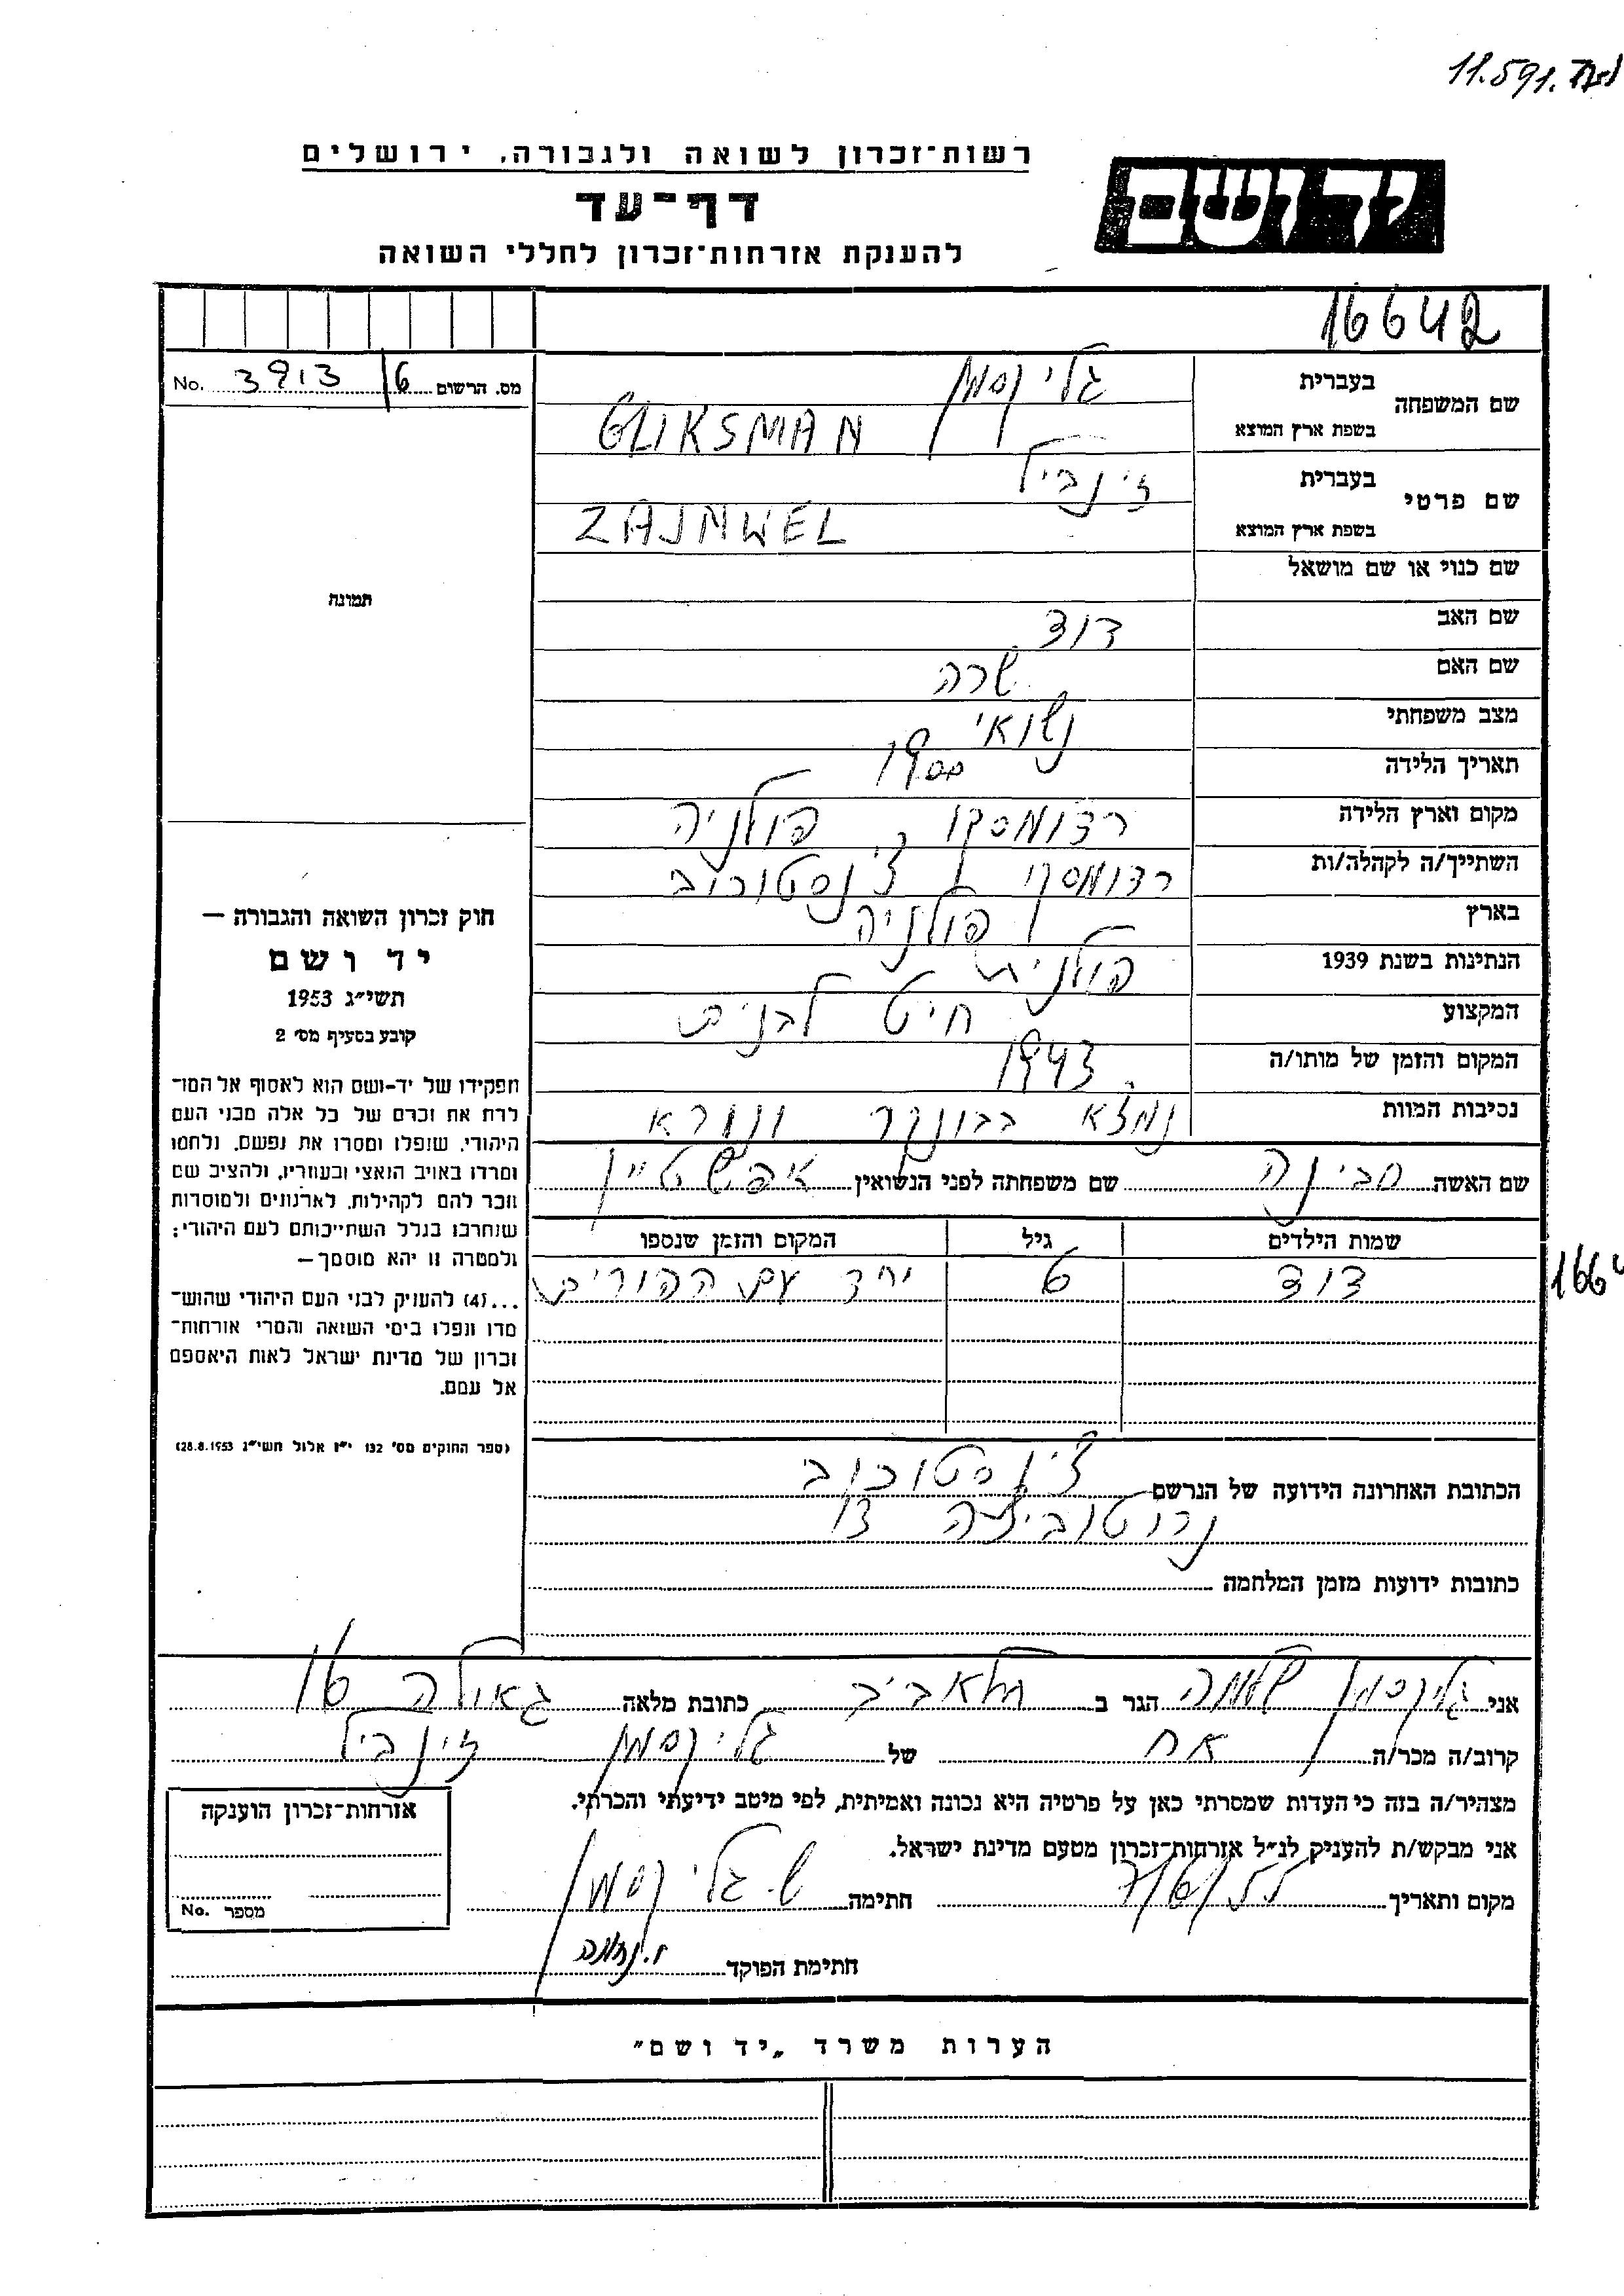 11.591.
רשות־זכרון לשואה ולגבורה, ירושלים
יד ושם
דף־עד
להענקת אזרחות־זכרון לחללי השואה
16642
מס. הרשום 16/3913 No.
שם המשפחה
בעברית גליקסמן
בשפת ארץ המוצא GLIKSMAN
שם פרטי
בעברית זינביל
בשפת ארץ המוצא ZAJNWEL
שם כנוי או שם מושאל
שם האב דוד
שם האם שרה
מצב משפחתי נשואי
תאריך הלידה 1900
מקום וארץ הלידה רדומסקו פולניה
השתייך/ה לקהלה/ות רדומסקו צ'נסטוכוב
בארץ פולניה
הנתינות בשנת 1939 פולנית
המקצוע חיט לבנים
המקום והזמן של מותו/ה 1943
נסיבות המוות נמצא בבונקר ונורא
שם האשה סבינה שם משפחתה לפני הנשואין אפשטיין
שמות הילדים גיל המקום והזמן שנספו
דוד 6 יחד עם ההורים
1664
הכתובת האחרונה הידועה של הנרשם צ'נסטוכוב
נרוטוביצה
כתובות ידועות מזמן המלחמה
תמונה
חוק זכרון השואה והגבורה —
יד ושם
תשי״ג 1953
קובע בסעיף מס׳ 2
תפקידו של יד־ושם הוא לאסוף אל המו־
לדת את זכרם של כל אלה מבני העם
היהודי, שנפלו ומסרו את נפשם, נלחמו
ומרדו באויב הנאצי ובעוזריו, ולהציב שם
וזכר להם לקהילות, לארגונים ולמוסדות
שנחרבו בגלל השתייכותם לעם היהודי;
ולמטרה זו יהא מוסמך —
...(4) להעניק לבני העם היהודי שהוש־
מדו ונפלו בימי השואה והמרי אזרחות־
זכרון של מדינת ישראל לאות היאספם
אל עמם.
(ספר החוקים מס׳ 132 י״ז אלול תשי״ג 28.8.1953)
אני גליקסמן שלמה הגר ב תל אביב כתובת מלאה גאולה 16
קרוב/ה מכר/ה אח של גליקסמן זינביל
מצהיר/ה בזה כי העדות שמסרתי כאן על פרטיה היא נכונה ואמיתית, לפי מיטב ידיעתי והכרתי.
אני מבקש/ת להעניק לנ״ל אזרחות־זכרון מטעם מדינת ישראל.
מקום ותאריך 7/6/55 חתימה ש. גליקסמן
חתימת הפוקד
אזרחות־זכרון הוענקה
מספר No.
הערות משרד „יד ושם״